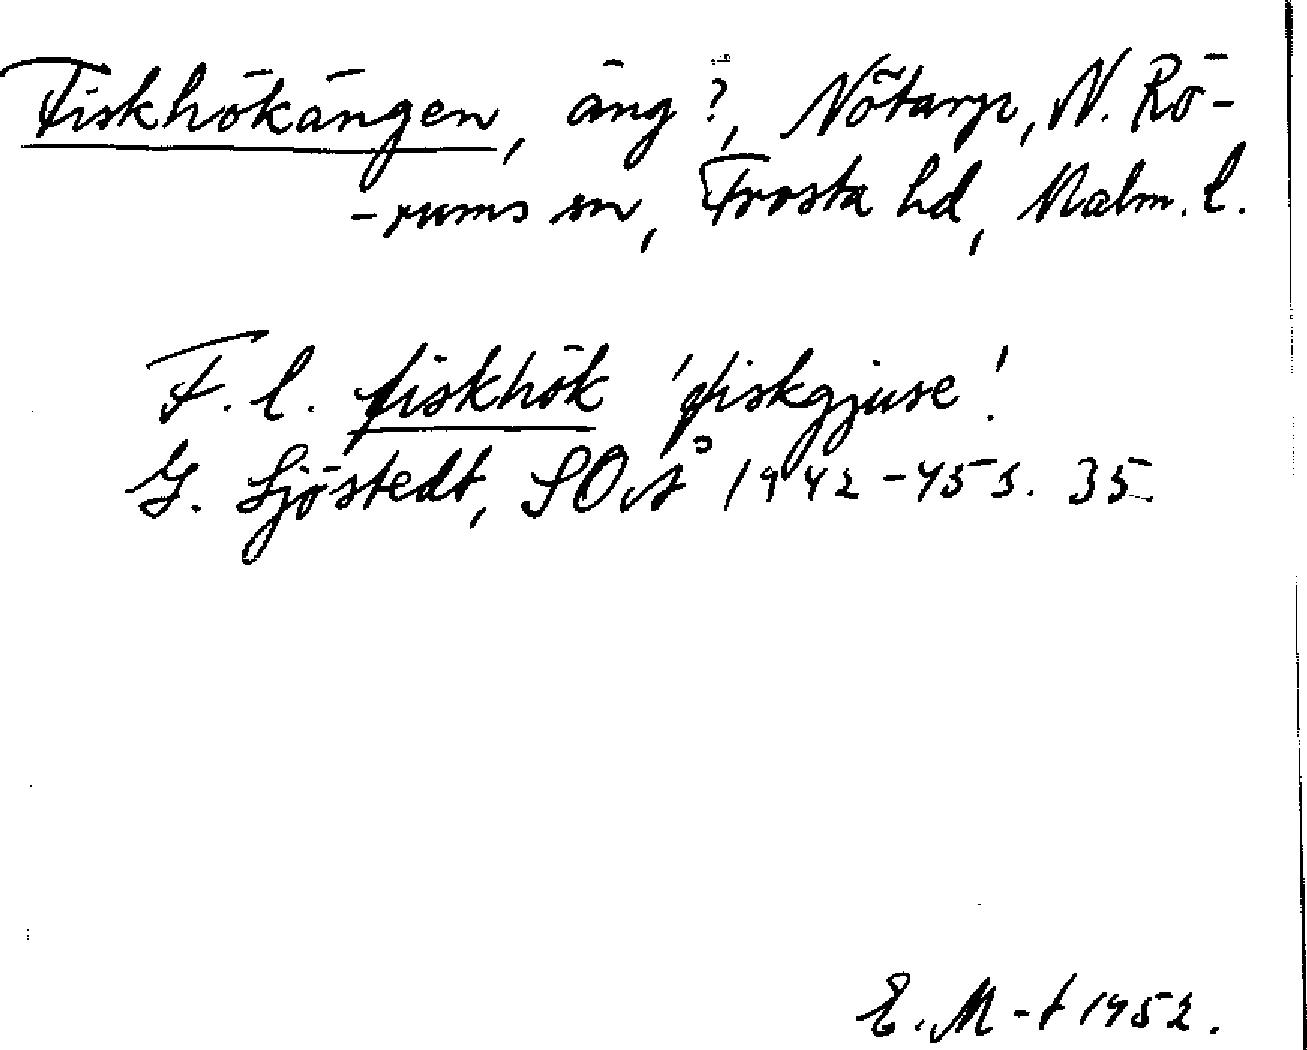 Fiskhökängen, äng?, Nötarp, N. Rö-
-rums sn, Frosta hd, Malm. l.
F. l. fiskhök 'fiskgjuse'.
G. Sjöstedt, SOÅ 1942-45 s. 35.
E. M-t 1952.